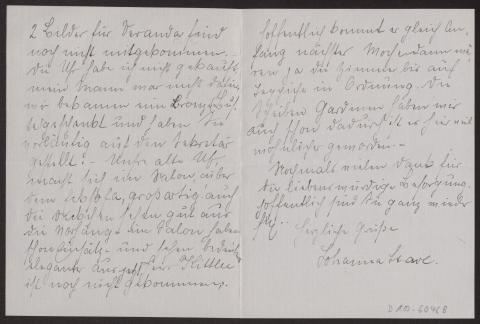 2 Bilder für Veranda sind
noch nicht mitgekommen. -
Die Uhr habe ich nicht gekauft
mein Mann war nicht dafür,
wir bekamen eine Bronzeuhr
geschenkt und haben sie
vorläufig auf den Sekretär
gestellt! - Unsre alte Uhr
macht sich im Salon, über
dem Sofa, großartig! auch
die
die Vorhänge im Salon haben
und sehen
eleganter aus, für Kittlee
ist noch nicht gekommen.
hoffentlich kommt er gleich An-
fang nächster Woche, dann wä-
ren ja die Zimmer bis auf
Teppiche in Ordnung. Die
Gardinen haben wir
auch schon dadurch ist es hier viel
wohnlicher geworden! -
Nochmals vielen Dank für
die liebenswürdige Besorgung.
hoffentlich sind Sie ganz wieder
Herzliche Grüße
Johanna
DAM-60468